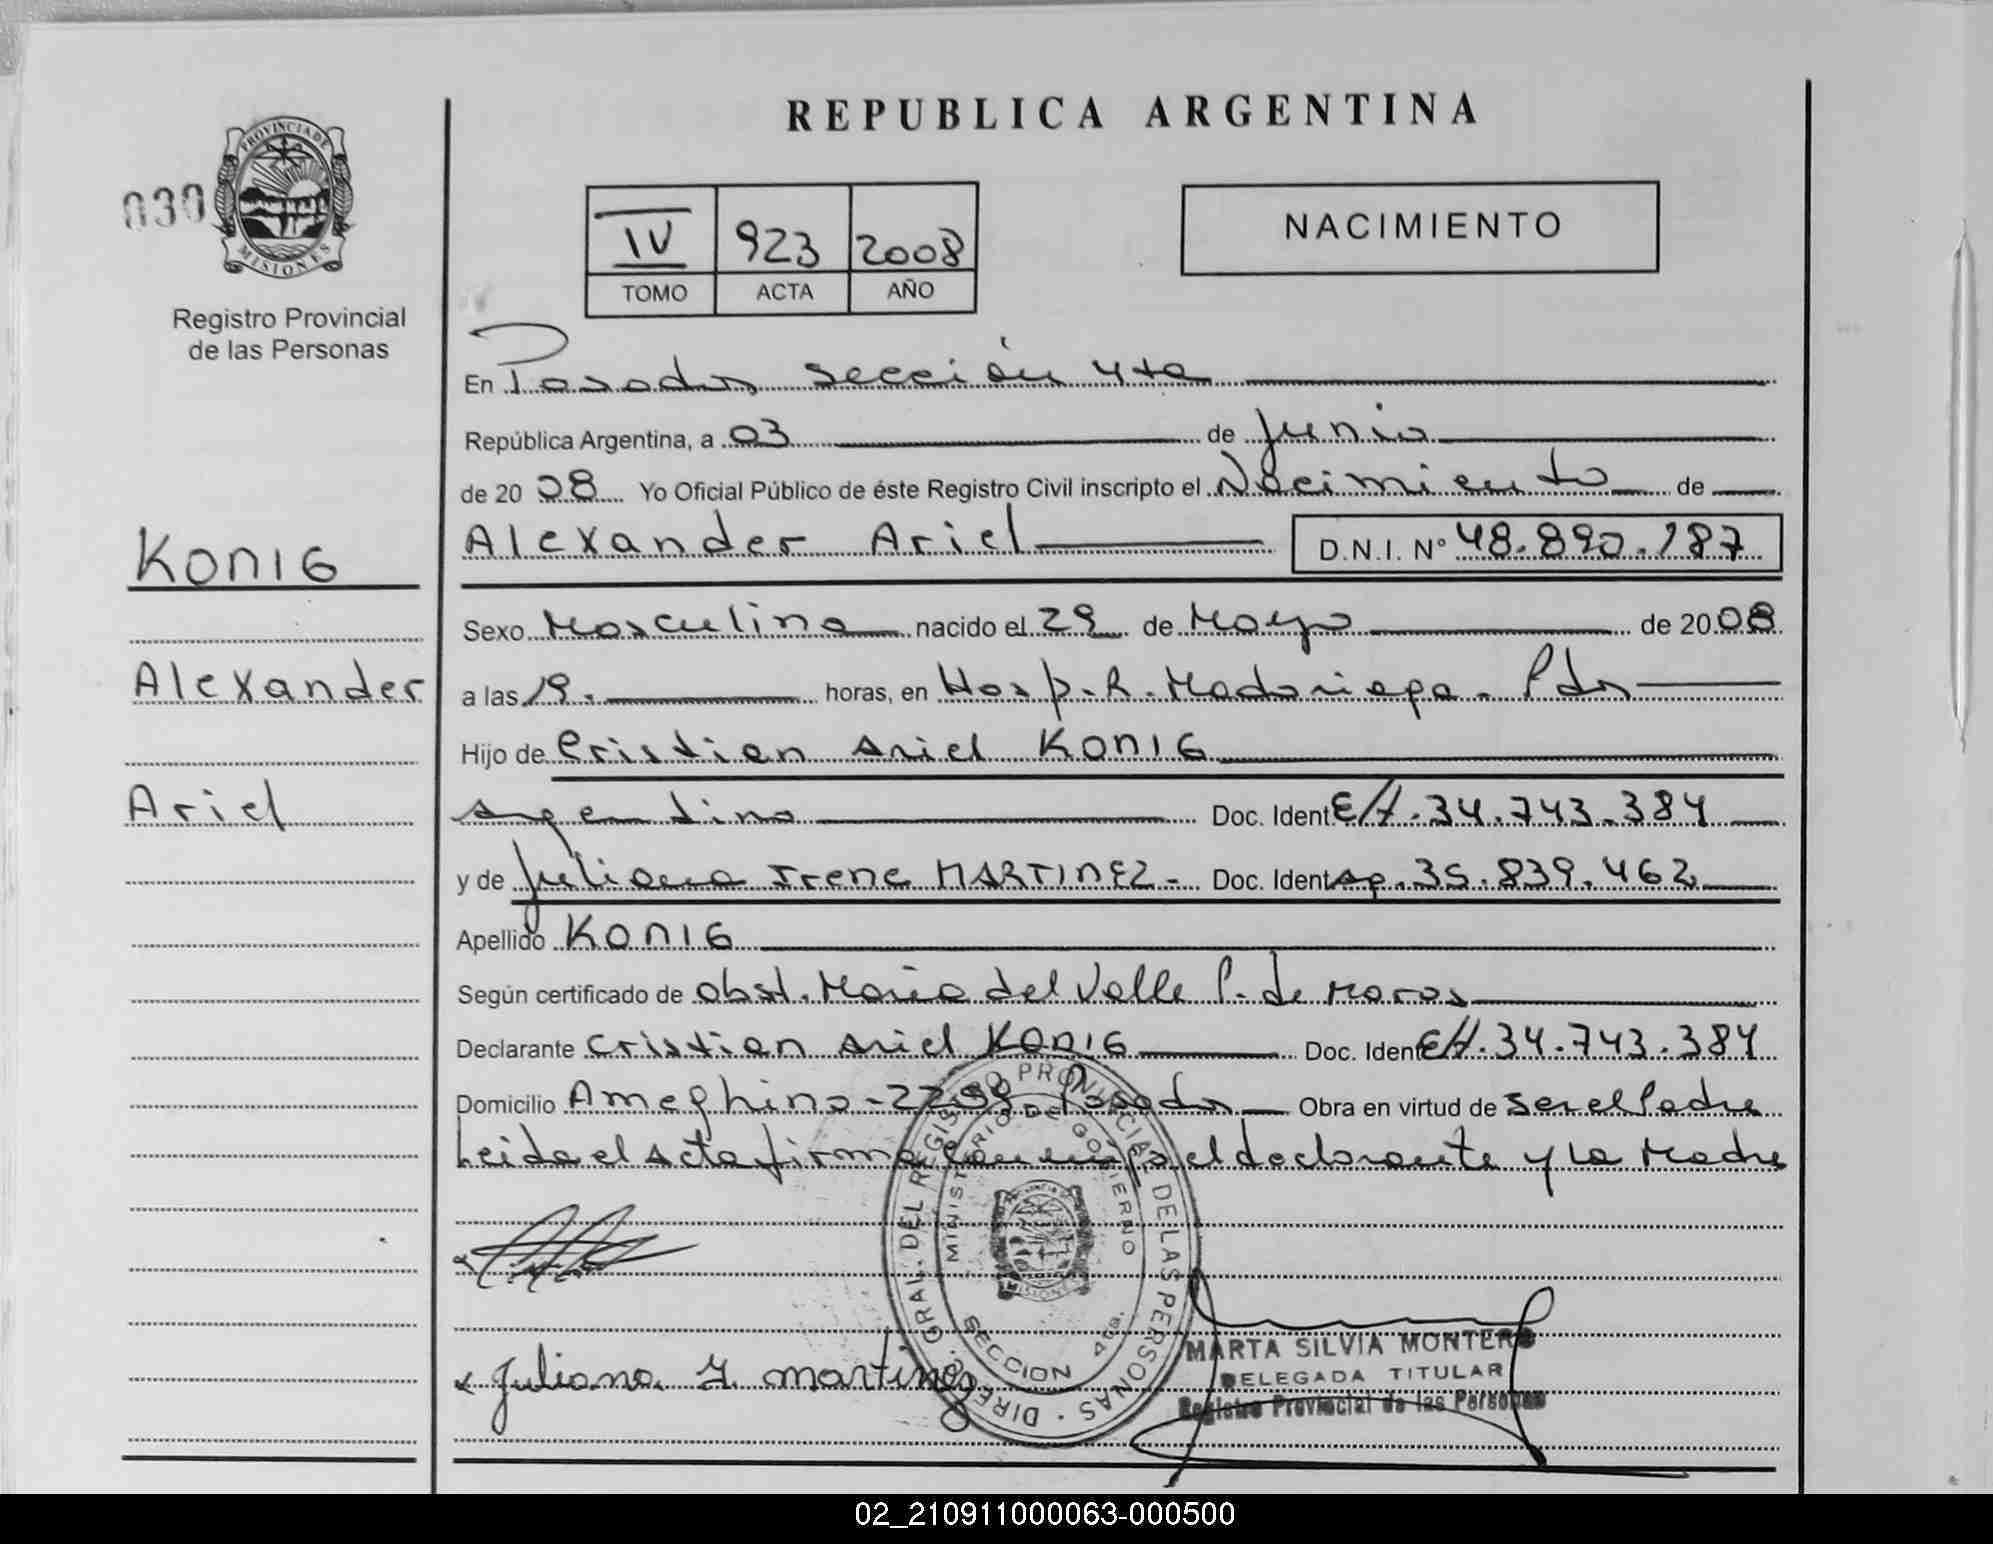 REPUBLICA ARGENTINA
030
PROVINCIA DE
MISIONES
Registro Provincial
de las Personas
IV 923 2008
TOMO ACTA AÑO
NACIMIENTO
En Posadas sección 4ta
República Argentina, a 03 de Junio
de 2008 Yo Oficial Público de éste Registro Civil inscripto el Nacimiento de
Alexander Ariel D.N.I. Nº 48.890.187
KONIG
Alexander
Ariel
Sexo Masculino nacido el 29 de Mayo de 2008
a las 19. horas, en Hosp. R. Madariaga. Pdas
Hijo de Cristian Ariel KONIG
argentino Doc. Ident 34.743.384
y de Juliana Irene MARTINEZ - Doc. Ident 35.839.462
Apellido KONIG
Según certificado de obst. Maria del Valle P. de Moros
Declarante Cristian Ariel KONIG Doc. Ident 34.743.384
Domicilio Ameghino - Posadas Obra en virtud de ser el Padre
Leida el Acta firma conmigo el declarante y la Madre
DIREC. GRAL. DEL REGISTRO PROVINCIAL DE LAS PERSONAS
MINISTERIO DE GOBIERNO
SECCION 4ta.
Juliana I. martinez
MARTA SILVIA MONTERO
DELEGADA TITULAR
Registro Provincial de las Personas
02_210911000063-000500